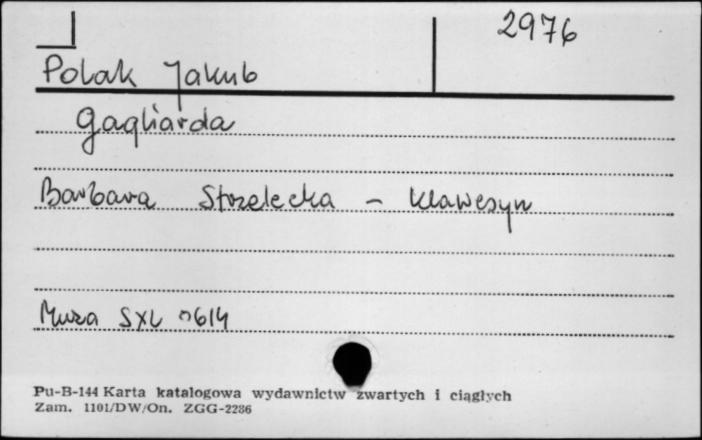 2976
Polak Jakub
Gagliarda
Barbara Strzelecka - klawesyn
Muza SXL 0614
Pu-B-144 Karta katalogowa wydawnictw zwartych i ciągłych
Zam. 1101/DW/On. ZGG-2286